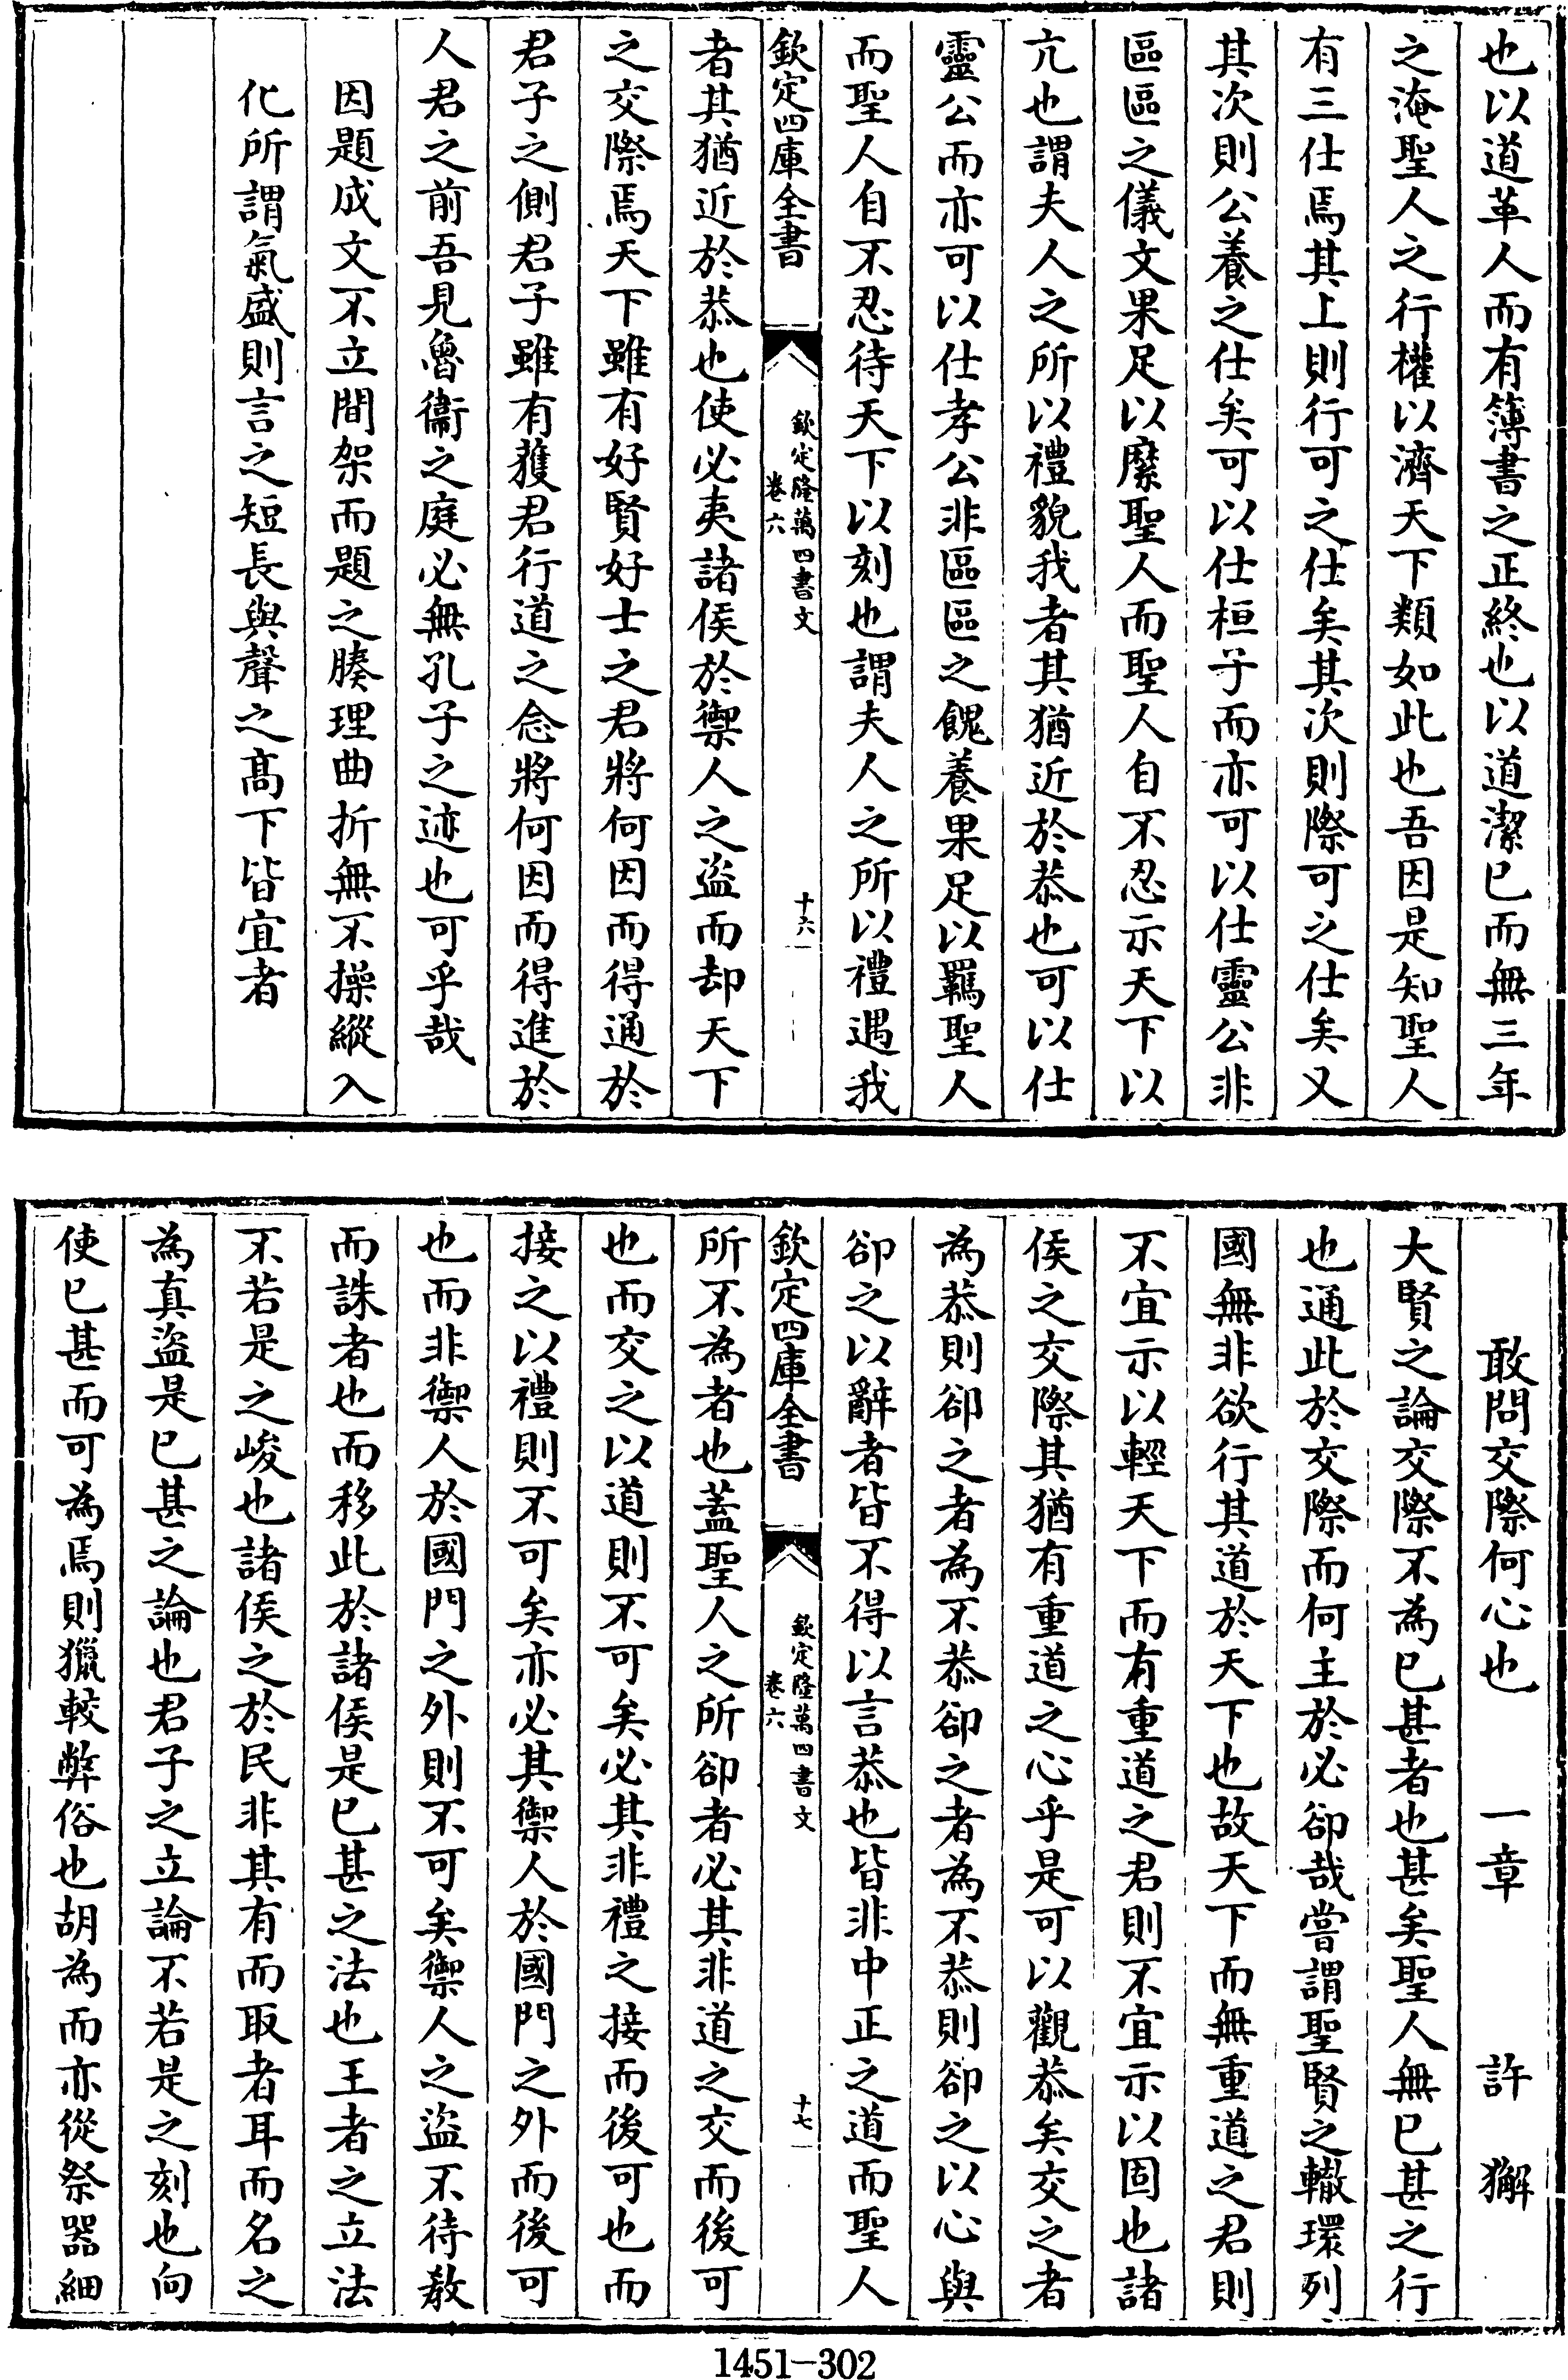 也以道革人而有簿書之正終也以道潔已而無三年
之淹聖人之行權以濟天下類如此也吾因是知聖人
有三仕焉其上則行可之仕矣其次則際可之仕矣又
其次則公養之仕矣可以仕桓子而亦可以仕靈公非
區區之儀文果足以縻聖人而聖人自不忍示天下以
亢也謂夫人之所以禮貌我者其猶近於恭也可以仕
靈公而亦可以仕孝公非區區之餽養果足以羈聖人
而聖人自不忍待天下以刻也謂夫人之所以禮遇我
欽定四庫全書
欽定隆萬四書文
卷六
十六
者其猶近於恭也使必夷諸侯於禦人之盜而却天下
之交際焉天下雖有好賢好士之君將何因而得通於
君子之側君子雖有獲君行道之念將何因而得進於
人君之前吾見魯衞之庭必無孔子之迹也可乎哉
因題成文不立間架而題之腠理曲折無不操縱入
化所謂氣盛則言之短長與聲之髙下皆宜者
敢問交際何心也 一章 許獬
大賢之論交際不為已甚者也甚矣聖人無已甚之行
也通此於交際而何主於必卻哉嘗謂聖賢之轍環列
國無非欲行其道於天下也故天下而無重道之君則
不宜示以輕天下而有重道之君則不宜示以固也諸
侯之交際其猶有重道之心乎是可以觀恭矣交之者
為恭則卻之者為不恭卻之者為不恭則卻之以心與
卻之以辭者皆不得以言恭也皆非中正之道而聖人
欽定四庫全書
欽定隆萬四書文
卷六
十七
所不為者也蓋聖人之所卻者必其非道之交而後可
也而交之以道則不可矣必其非禮之接而後可也而
接之以禮則不可矣亦必其禦人於國門之外而後可
也而非禦人於國門之外則不可矣禦人之盜不待教
而誅者也而移此於諸侯是已甚之法也王者之立法
不若是之峻也諸侯之於民非其有而取者耳而名之
為真盜是已甚之論也君子之立論不若是之刻也向
使已甚而可為焉則獵較弊俗也胡為而亦從祭器細
1451-302